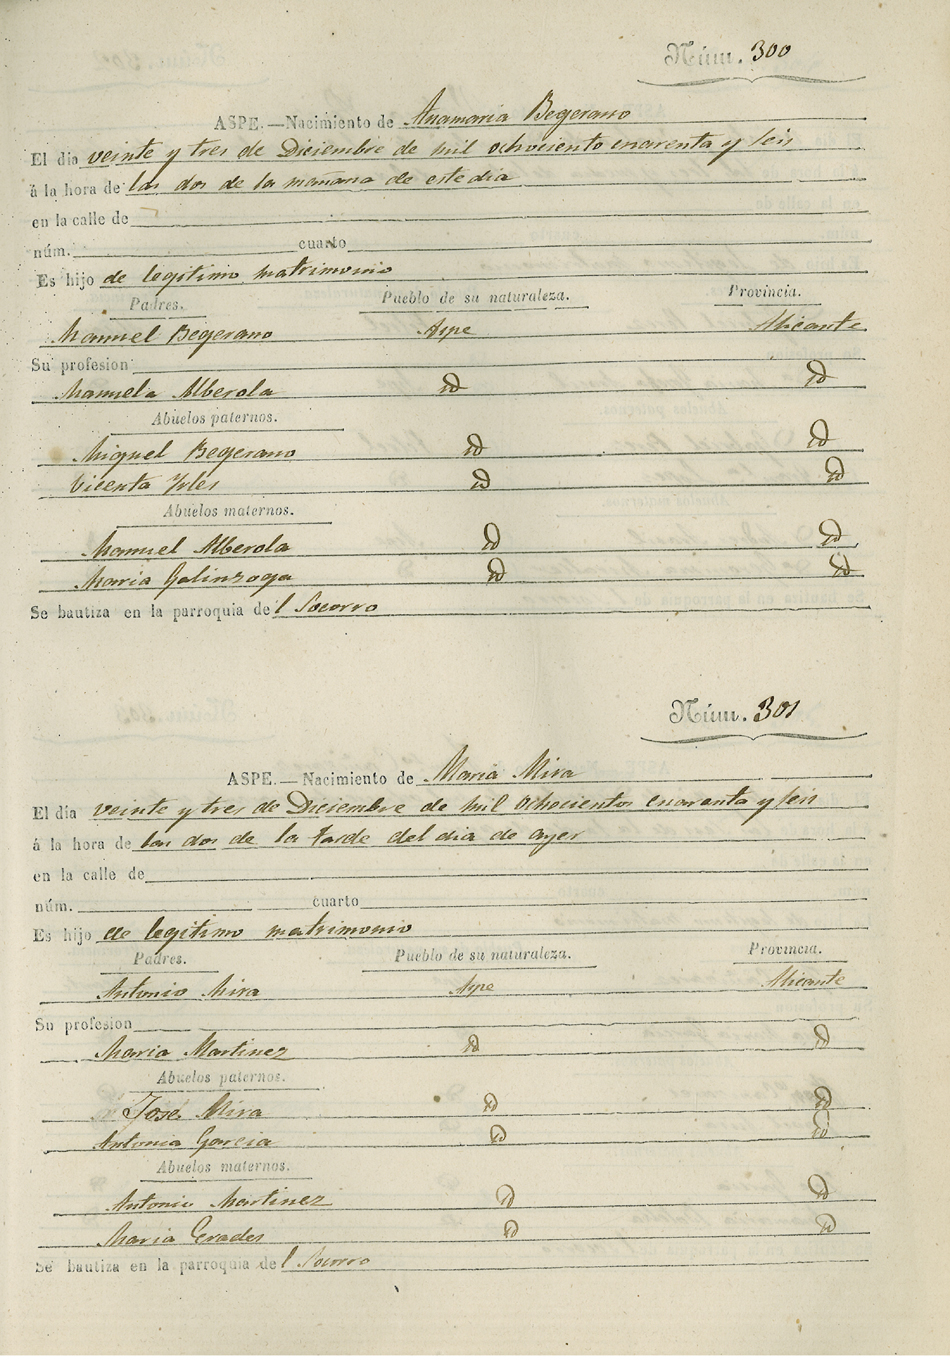 Núm. 300
ASPE.—Nacimiento de Anamaria Begerano
El dia veinte y tres de Diciembre de mil ochociento cuarenta y seis
á la hora de las dos de la mañana de este dia
en la calle de
núm. cuarto
Es hijo de legitimo matrimonio
Padres. Pueblo de su naturaleza. Provincia.
Manuel Begerano Aspe Alicante
Su profesion
Manuela Alberola id id
Abuelos paternos.
Miguel Begerano id id
Vicenta Yrles id id
Abuelos maternos.
Manuel Alberola id id
Maria Galinzoga id id
Se bautiza en la parroquia del Socorro
Núm. 301
ASPE.—Nacimiento de Maria Mira
El dia veinte y tres de Diciembre de mil ochocientos cuarenta y seis
á la hora de las dos de la tarde del dia de ayer
en la calle de
núm. cuarto
Es hijo de legitimo matrimonio
Padres. Pueblo de su naturaleza. Provincia.
Antonio Mira Aspe Alicante
Su profesion
Maria Martinez id id
Abuelos paternos.
José Mira id id
Antonia Garcia id id
Abuelos maternos.
Antonio Martinez id id
Maria Erades id id
Se bautiza en la parroquia del Socorro